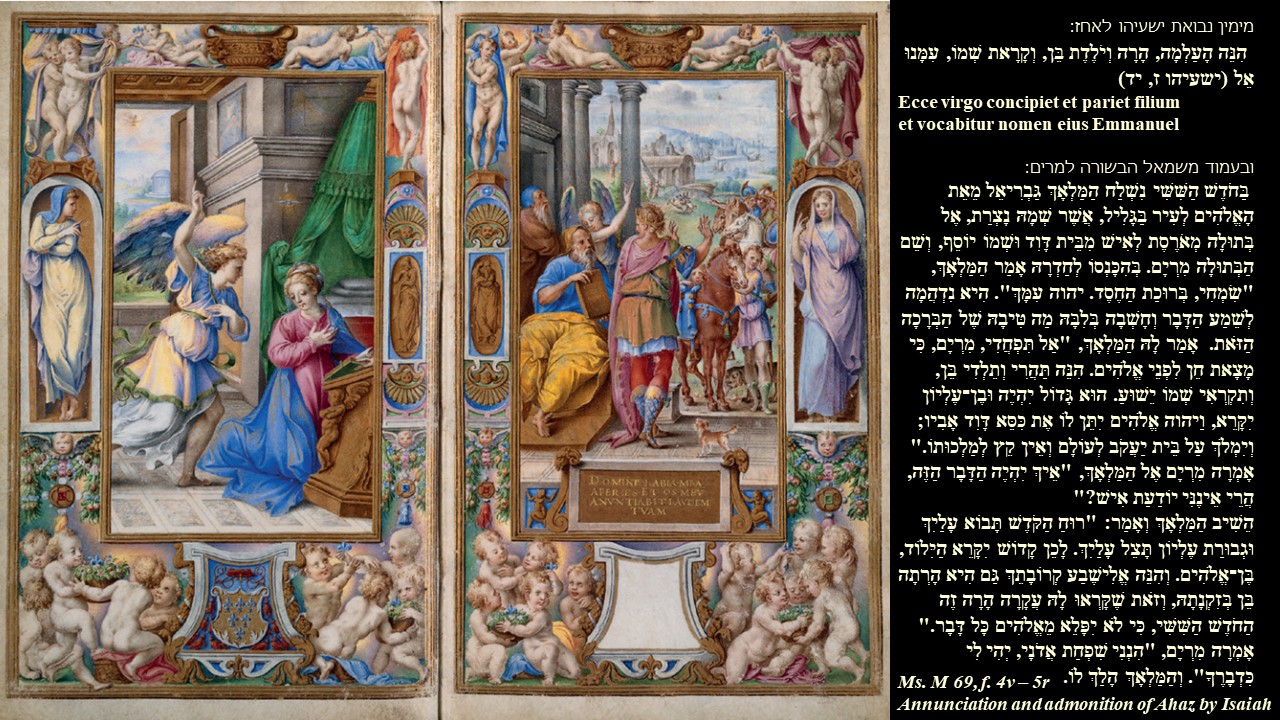 מימין נבואת ישעיהו לאחז:
הִנֵּה הָעַלְמָה, הָרָה וְיֹלֶדֶת בֵּן, וְקָרָאת שְׁמוֹ, עִמָּנוּ
אֵל (ישעיהו ז, יד)
Ecce virgo concipiet et pariet filium
et vocabitur nomen eius Emmanuel
ובעמוד משמאל הבשורה למרים:
בַּחֹדֶשׁ הַשִּׁשִּׁי נִשְׁלַח הַמַּלְאָךְ גַּבְרִיאֵל מֵאֵת
הָאֱלֹהִים לְעִיר בַּגָּלִיל, אֲשֶׁר שְׁמָהּ נָצְרַת, אֶל
בְּתוּלָה מְאֹרֶסֶת לְאִישׁ מִבֵּית דָּוִד וּשְׁמוֹ יוֹסֵף, וְשֵׁם
הַבְּתוּלָה מִרְיָם. בְּהִכָּנְסוֹ לְחַדְרָהּ אָמַר הַמַּלְאָךְ,
"שִׂמְחִי, בְּרוּכַת הַחֶסֶד. יהוה עִמָּךְ". הִיא נִדְהֲמָה
לְשֵׁמַע הַדָּבָר וְחָשְׁבָה בְּלִבָּהּ מַה טִּיבָהּ שֶׁל הַבְּרָכָה
הַזֹּאת. אָמַר לָהּ הַמַּלְאָךְ, "אַל תִּפְחֲדִי, מִרְיָם, כִּי
מָצָאת חֵן לִפְנֵי אֱלֹהִים. הִנֵּה תַּהֲרִי וְתֵלְדִי בֵּן,
וְתִקְרְאִי שְׁמוֹ יֵשׁוּעַ. הוּא גָּדוֹל יִהְיֶה וּבֶן־עֶלְיוֹן
יִקָּרֵא, וַיהוה אֱלֹהִים יִתֵּן לוֹ אֶת כִּסֵּא דָּוִד אָבִיו;
וְיִמְלֹךְ עַל בֵּית יַעֲקֹב לְעוֹלָם וְאֵין קֵץ לְמַלְכוּתוֹ."
אָמְרָה מִרְיָם אֶל הַמַּלְאָךְ, "אֵיךְ יִהְיֶה הַדָּבָר הַזֶּה,
הֲרֵי אֵינֶנִּי יוֹדַעַת אִישׁ?"
הֵשִׁיב הַמַּלְאָךְ וְאָמַר: "רוּחַ הַקֹּדֶשׁ תָּבוֹא עָלַיִךְ
וּגְבוּרַת עֶלְיוֹן תָּצֵל עָלַיִךְ. לָכֵן קָדוֹשׁ יִקָּרֵא הַיִּלּוֹד,
בֶּן־אֱלֹהִים. וְהִנֵּה אֱלִישֶׁבַע קְרוֹבָתֵךְ גַּם הִיא הָרְתָה
בֵּן בְּזִקְנָתָהּ, וְזֹאת שֶׁקָּרְאוּ לָהּ עֲקָרָה הָרָה זֶה
הַחֹדֶשׁ הַשִּׁשִּׁי, כִּי לֹא יִפָּלֵא מֵאֱלֹהִים כָּל דָּבָר."
אָמְרָה מִרְיָם, "הִנְנִי שִׁפְחַת אֲדֹנָי, יְהִי לִי
כִּדְבָרֶךָ". וְהַמַּלְאָךְ הָלַךְ לוֹ.
Ms. M 69, f. 4v – 5r
Annunciation and admonition of Ahaz by Isaiah
DOMINE LABIA MEA
APERIES ET OS MEV
ANVNTIABIT LAVDEM
TVAM